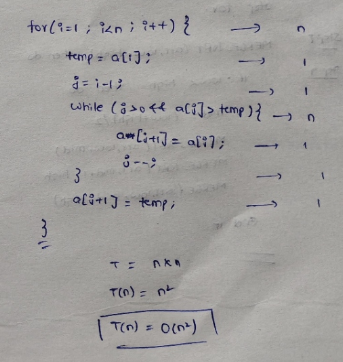 for(i=1 ; i<n ; i++) { → n
temp = a[i]; → 1
j = i-1; → 1
while (j>0 && a[j]>temp){ → n
a[j+1] = a[j]; → 1
j--;
} → 1
a[j+1] = temp; → 1
}
T = n×n
T(n) = n²
T(n) = O(n²)